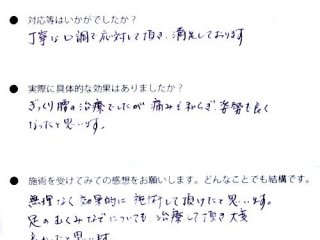 ● 対応等はいかがでしたか？
丁寧な口調で応対して頂き、満足しております
● 実際に具体的な効果はありましたか？
ぎっくり腰の治療でしたが痛みも和らぎ、姿勢も良く
なったと思います。
● 施術を受けてみての感想をお願いします。どんなことでも結構です。
無理なく効果的に施術して頂けたと思います。
足のむくみなどについても、治療して頂き大変
よかったと思います